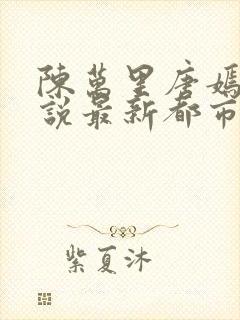 陳萬里唐嫣
說最新都市
紫夏沐